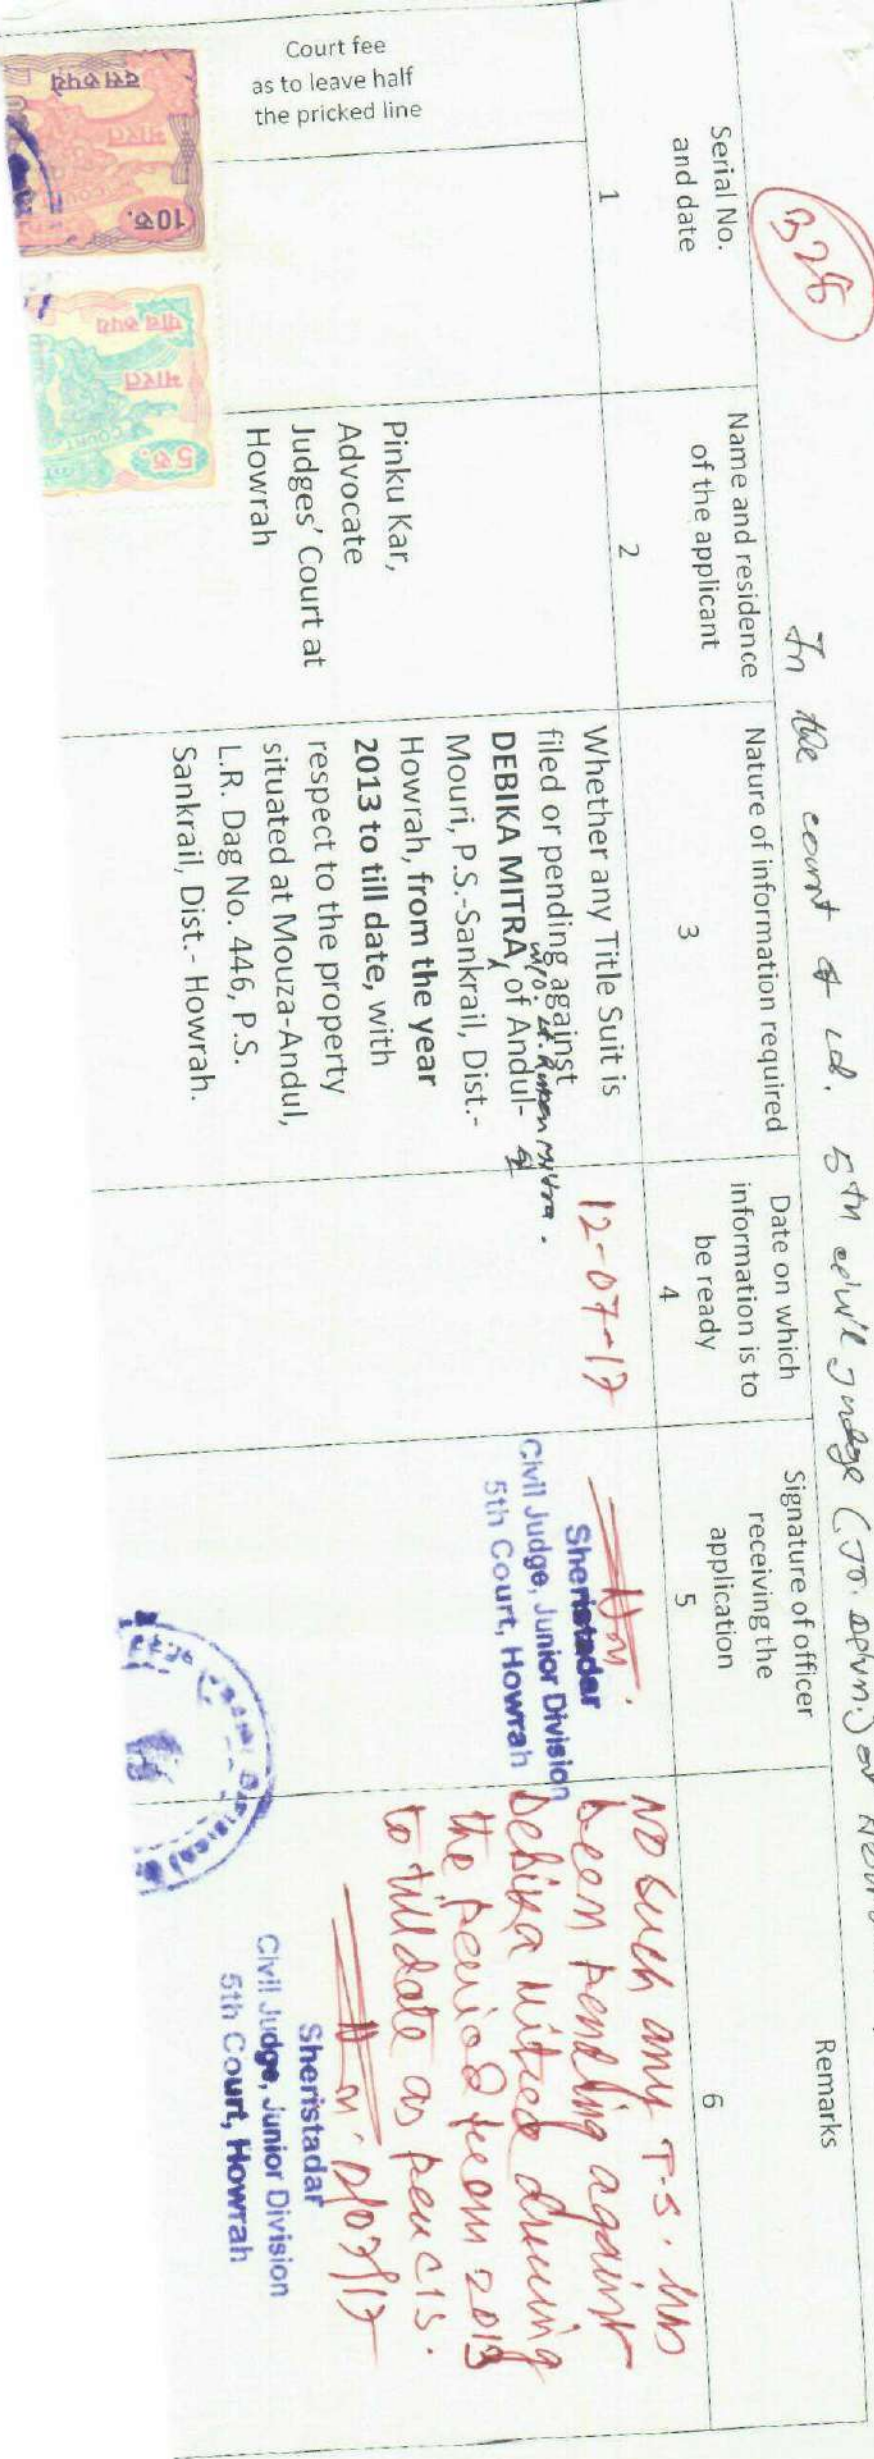 328
In the court of Ld. 5th Civil Judge (Jr. Divn.) at
Court fee
as to leave half
the pricked line
Serial No.
and date
Name and residence
of the applicant
Nature of information required
Date on which
information is to
be ready
Signature of officer
receiving the
application
Remarks
1
2
3
4
5
6
Pinku Kar,
Advocate
Judges' Court at
Howrah
Whether any Title Suit is
filed or pending against
W/O. Lt. Rupen Mitra.
DEBIKA MITRA, of Andul-
Mouri, P.S.-Sankrail, Dist.-
Howrah, from the year
2013 to till date, with
respect to the property
situated at Mouza-Andul,
L.R. Dag No. 446, P.S.
Sankrail, Dist.- Howrah.
12-07-17
Sheristadar
Civil Judge, Junior Division
5th Court, Howrah
No such any T.S. has
been pending against
Debika Mitra during
the period from 2013
to till date as per CIS.
Sheristadar
Civil Judge, Junior Division
5th Court, Howrah
दस रुपये
भारत
COURT
10रु.
पांच रुपये
भारत
COURT
5रु.